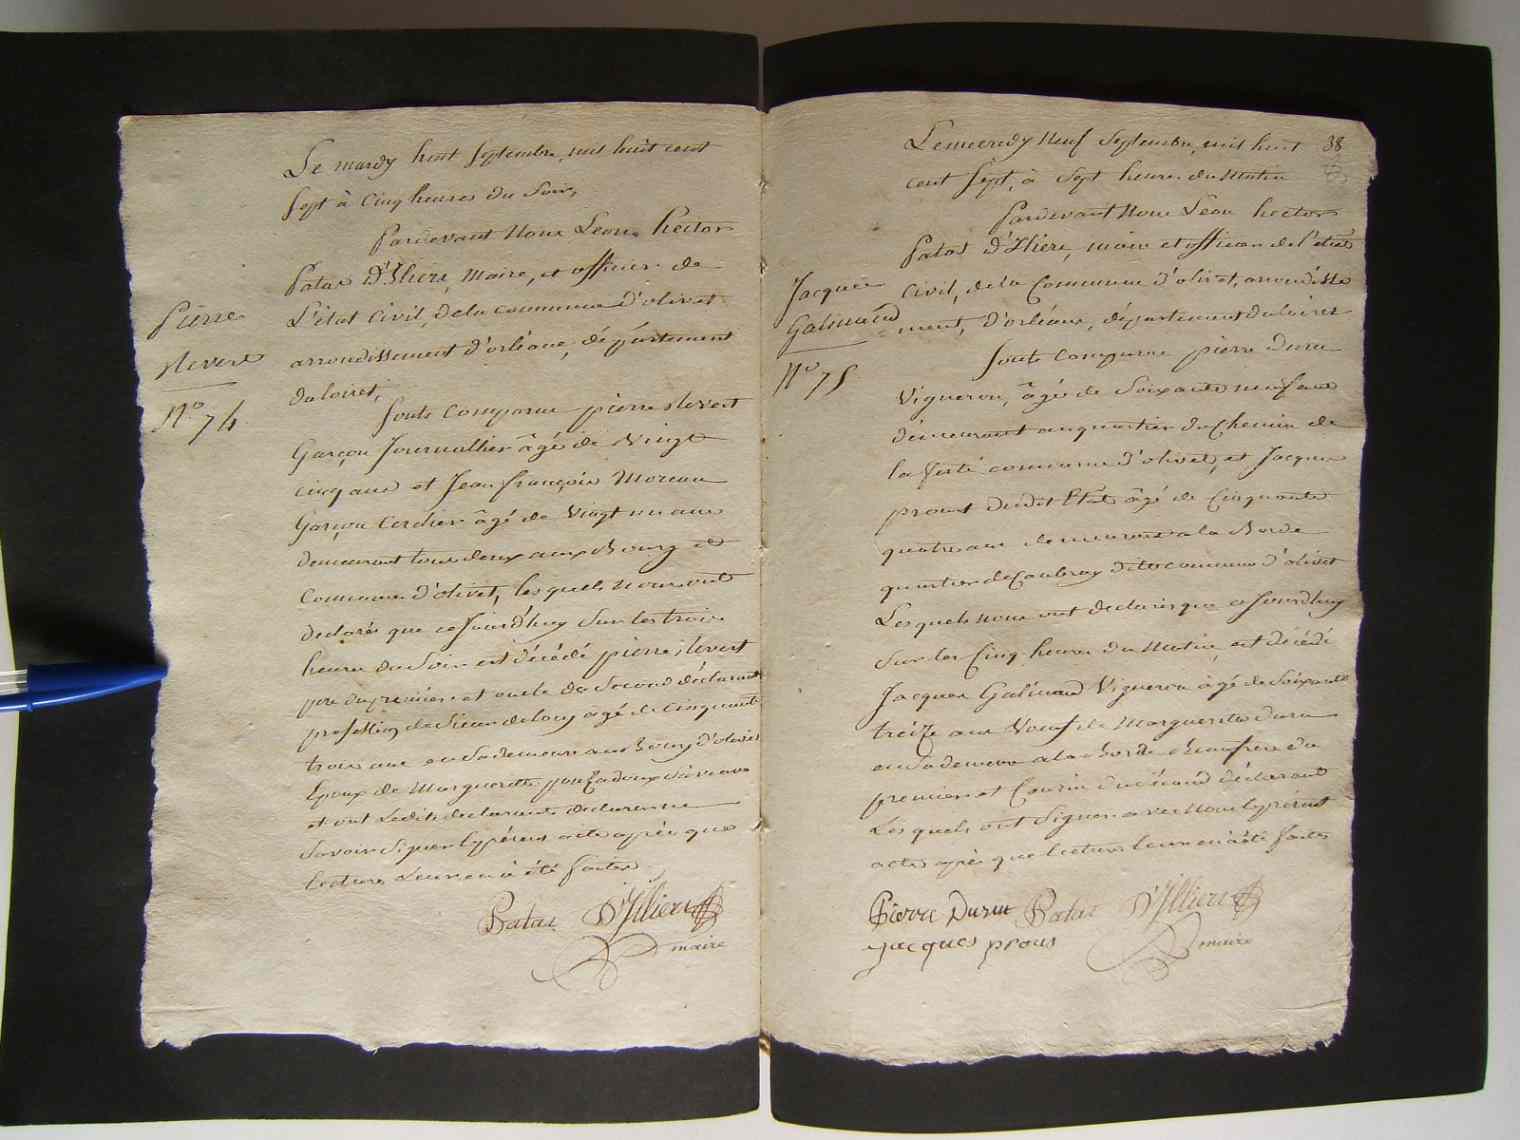 Le mardy huit Septembre, mil huit cent
Sept à Cinq heures du Soir,
Pardevant Nous Leon Hector
Patas D'Illiers, Maire, et officier de
L'état Civil, de la commune d'olivet
arrondissement d'orléans, département
du loiret,
Pierre
Nevert
N.o 74
Sont Comparus pierre Nevert
Garçon Journallier âgé de Vingt
cinq ans et Jean françois Moreau
Garçon Cordier âgé de Vingt un ans
demeurant tous deux aux Bourg et
Commune d'olivet, lesquels nous ont
declarés que cejourd'huy Sur les trois
heures du Soir est décédé pierre Nevert
pere du premier et oncle du Second déclarant
profession de âgé de Cinquante
trois ans en Sa demeure au Bourg d'olivet
Epoux de Marguerite
et ont Lesdits declarants declaré ne
Savoir Signer le présent acte après que
lecture Leur en à été faitte
Patas D'Illiers
maire
38
Le mercredy Neuf Septembre, mil huit
cent Sept, à Sept heures du Matin
Pardevant Nous Leon hector
Patas D'Illiers, maire et officier de l'état
Civil, de la Commune d'olivet, arrondisse
ment, D'orléans, département du loiret
Jacques
Galinand
N.o 75
Sont Comparus pierre Duru
Vigneron, âgé de Soixante neuf ans
demeurant au quartier du Chemin de
la ferté commune d'olivet, et Jacques
prous dudit Etat âgé de Cinquante
quatre ans demeurant a la Borde
quartier de Caubray dite commune d'olivet
Lesquels nous ont declarés que cejourd'huy
Sur les Cinq heures du Matin, est décédé
Jacques Galinand Vigneron âgé de Soixante
treize ans Veuf de Marguerite Duru
en Sa demeure a la Borde Beaufrere du
premier et Cousin du Second déclarant
Lesquels ont Signer avec Nous le présent
acte après que lecture leur en à été faitte
Pierre Duru Patas D'Illiers
Jacques prous maire